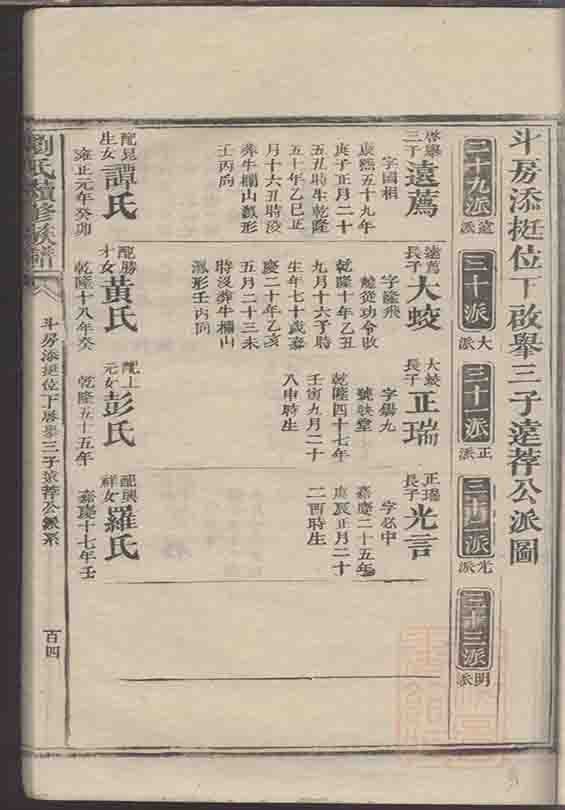 斗房添挺位下啟舉三子遠荐公派圖
二十九派 遠派
三十派 大派
三十一派 正派
三十二派 光派
三十三派 明派
啓舉三子 遠薦
字國相
康熙五十九年
庚子正月二十
五丑時生乾隆
五十年乙巳正
月十六丑時沒
葬牛欄山瓢形
壬丙向
配昆生女 譚氏
雍正元年癸卯
遠薦長子 大蛟
字隆飛
乾隆十年乙丑
九月十六子時
生年七十歲嘉
慶二十年乙亥
五月二十三未
時沒葬牛欄山
瓢形壬丙向
配勝才女 黃氏
乾隆十八年癸
大蛟長子 正瑞
字錫九
號映堂
乾隆四十七年
壬寅九月二十
八申時生
配上元女 彭氏
乾隆五十五年
正瑞長子 光言
字必中
嘉慶二十五年
庚辰正月二十
二酉時生
配興祥女 羅氏
嘉慶十七年壬
劉氏續修族譜
斗房添挺位下啓舉三子遠荐公派系
百四